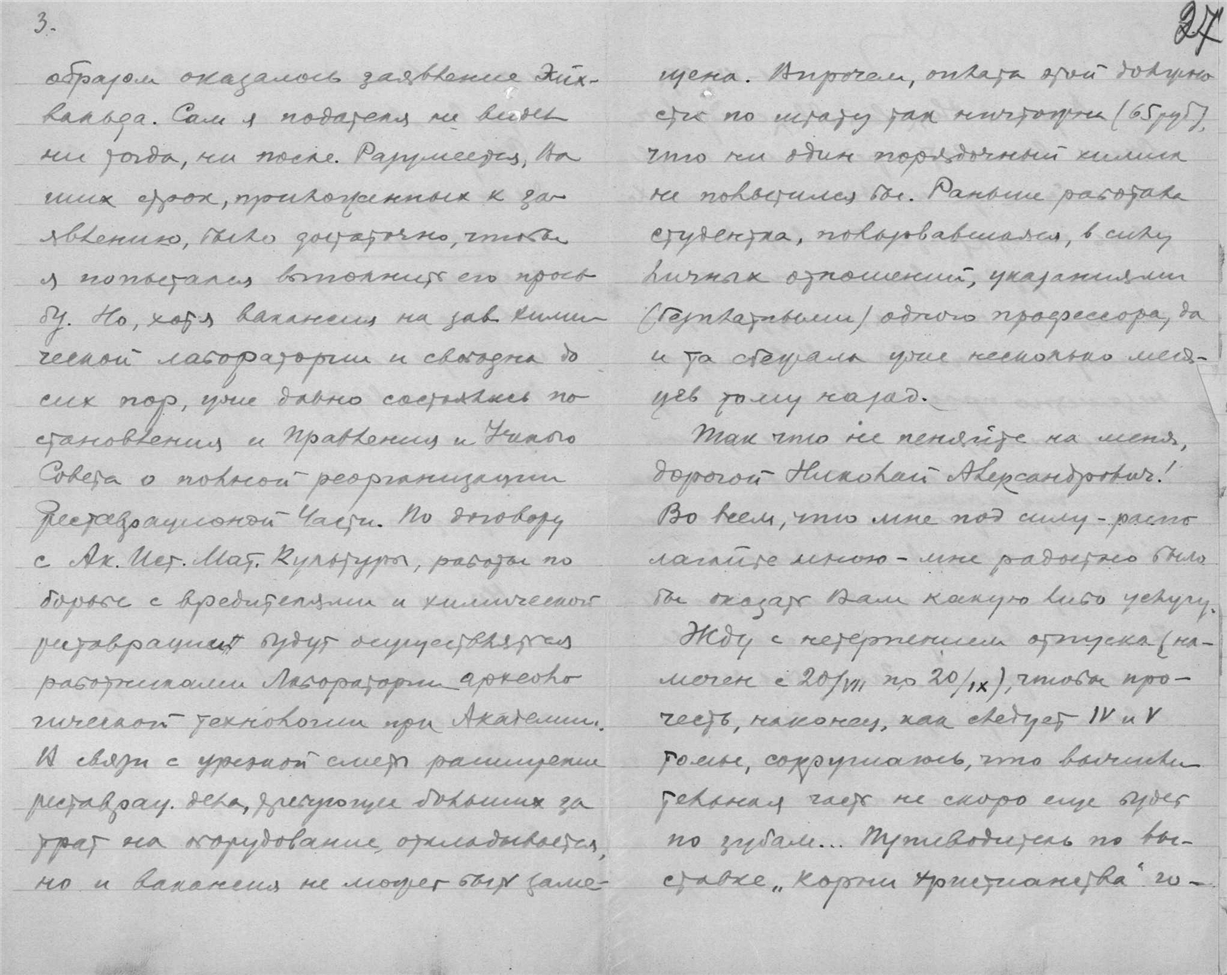 3.
образом оказалось заявление Эйх-
вальда. Сам я подателя не видел
ни тогда, ни после. Разумеется, Ва
ших строк, приложенных к за
явлению, было достаточно, чтобы
я попытался выполнить его прось
бу. Но, хотя вакансия на зав. хими
ческой лаборатории и свободна до
сих пор, уже давно состоялись по
становления и Правления и Ученого
Совета о полной реорганизации
Реставрационной Части. По договору
с Ак. Ист. Мат. Культуры, работы по
борьбе с вредителями и химической
реставрации будут осуществляться
работниками Лаборатории археоло
гической технологии при Академии.
В связи с урезкой сметы расширение
реставрац. дела, требующее больших за
трат на оборудование, откладывается,
но и вакансия не может быть заме-
27
щена. Впрочем, оплата этой должно
сти по штату так ничтожна (65 руб),
что ни один порядочный химик
не польстился бы. Раньше работала
студентка, пользовавшаяся, в силу
личных отношений, указаниями
(безплатными) одного профессора, да
и та сбежала уже несколько меся-
цев тому назад.
Так что не пеняйте на меня,
дорогой Николай Александрович!
Во всем, что мне под силу - распо
лагайте мною - мне радостно было
бы оказать Вам какую либо услугу.
Жду с нетерпением отпуска (на-
мечен с 20/VIII по 20/IX), чтобы про-
честь, наконец, как следует IV и V
томы, сокрушаясь, что вычисли
тельная часть не скоро еще будет
по зубам... Путеводитель по вы-
ставке „Корни христианства" го-